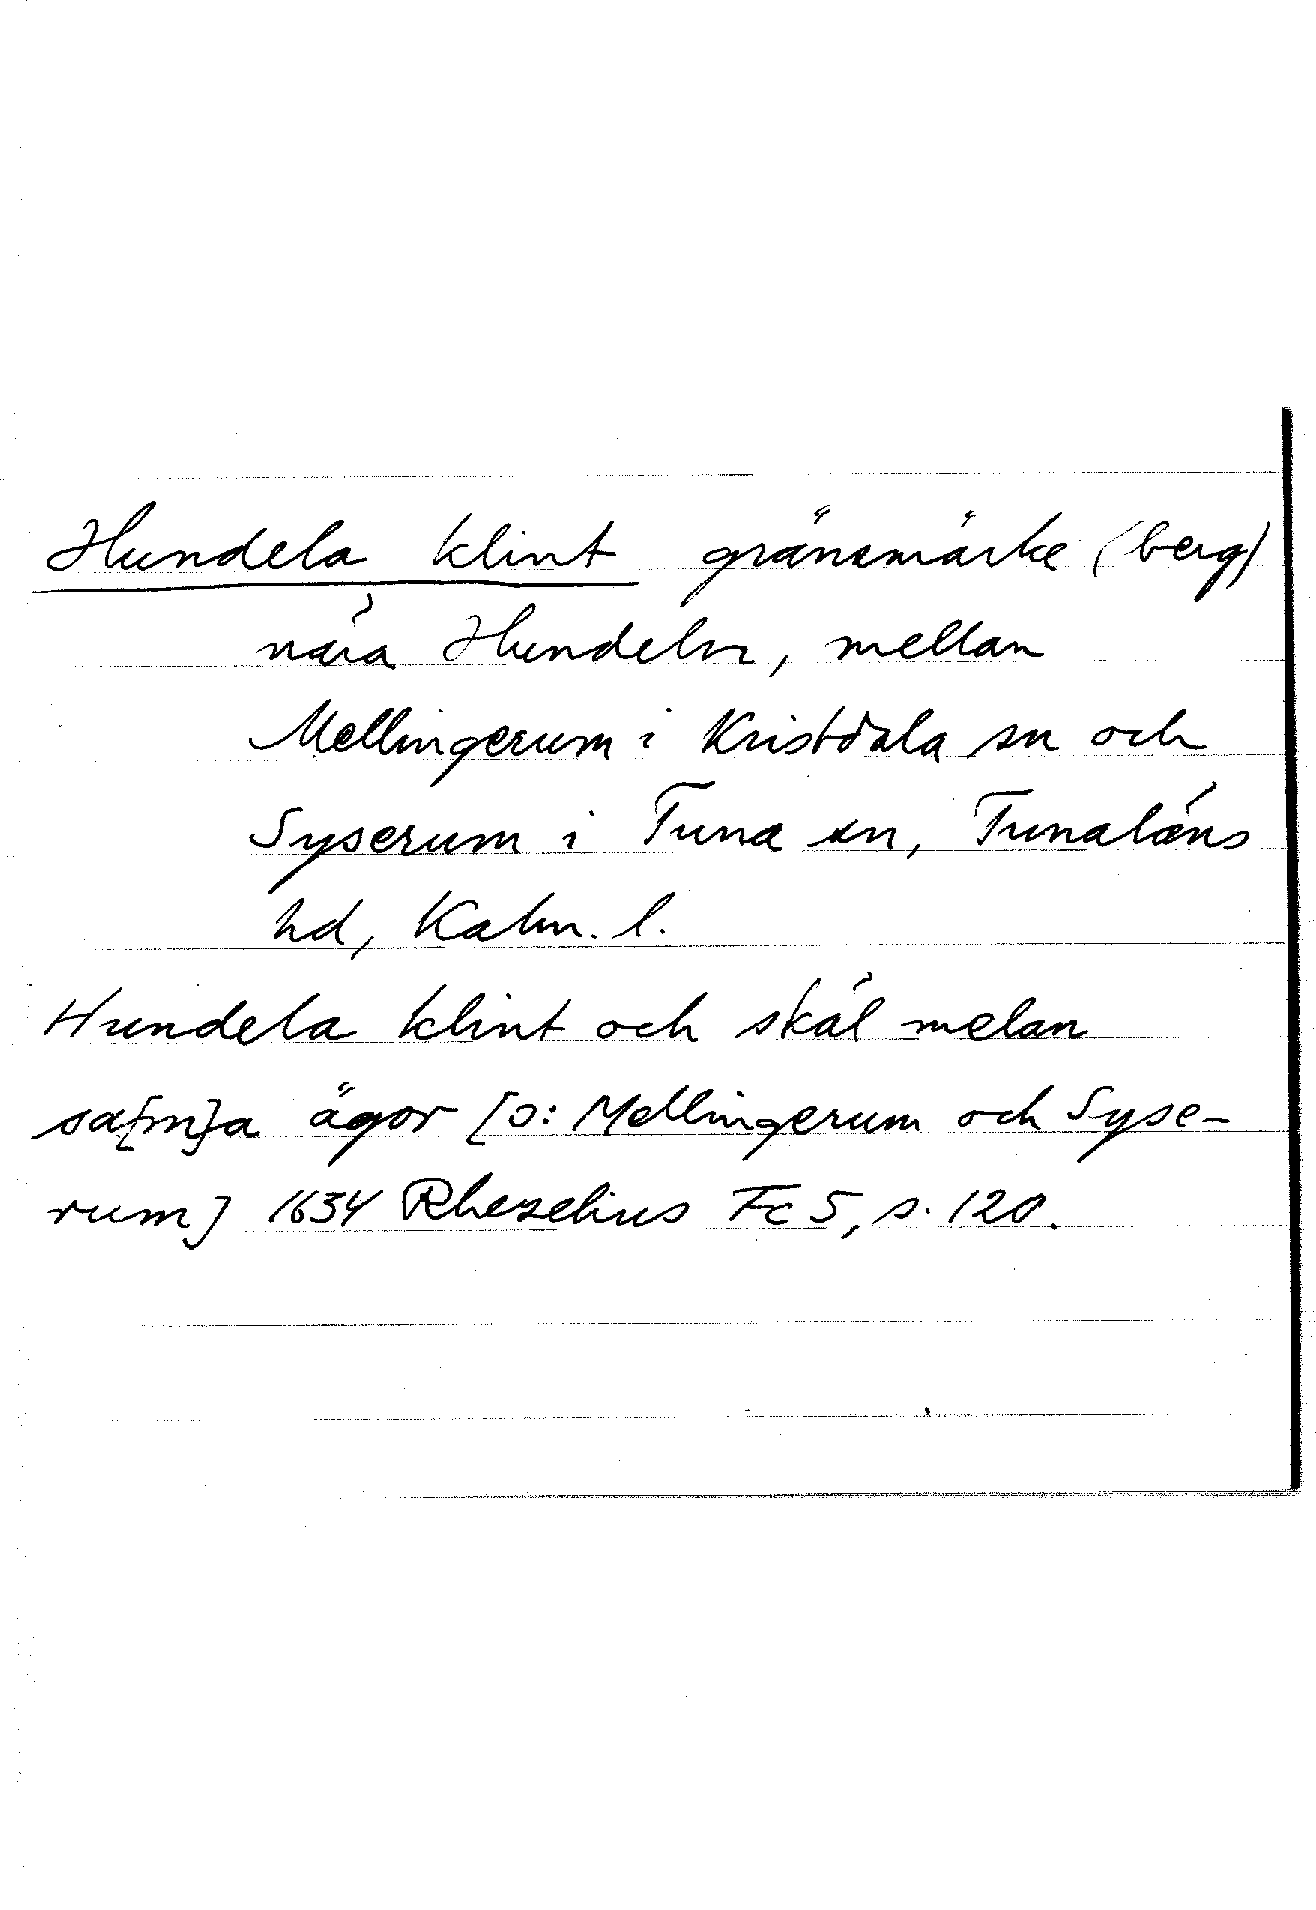 Hundela klint gränsmärke (berg)
nära Hundeln, mellan
Mellingerum i Kristdala sn och
Syserum i Tuna sn, Tunaläns
hd, Kalm. l.
Hundela klint och skäl melan
sa[m]a ägor [ɔ: Mellingerum och Syse-
rum] 1634 Rhezelius Fc 5, s. 120.